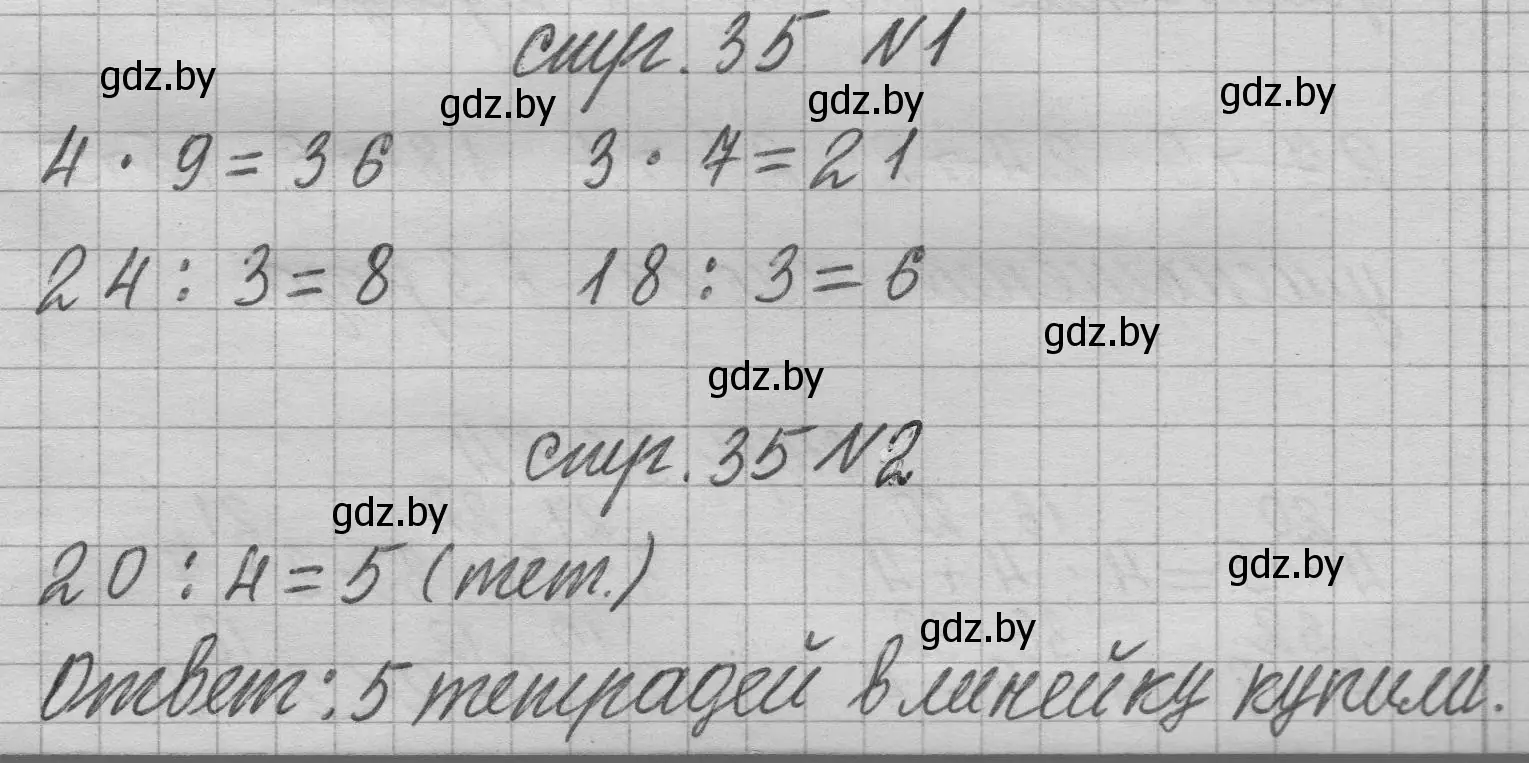 стр. 35 N1
gdz.by gdz.by gdz.by gdz.by
4 · 9 = 36 3 · 7 = 21
24 : 3 = 8 18 : 3 = 6
gdz.by
gdz.by
стр. 35 N2
gdz.by
20 : 4 = 5 (тет.) gdz.by
gdz.by
Ответ: 5 тетрадей в линейку купили.